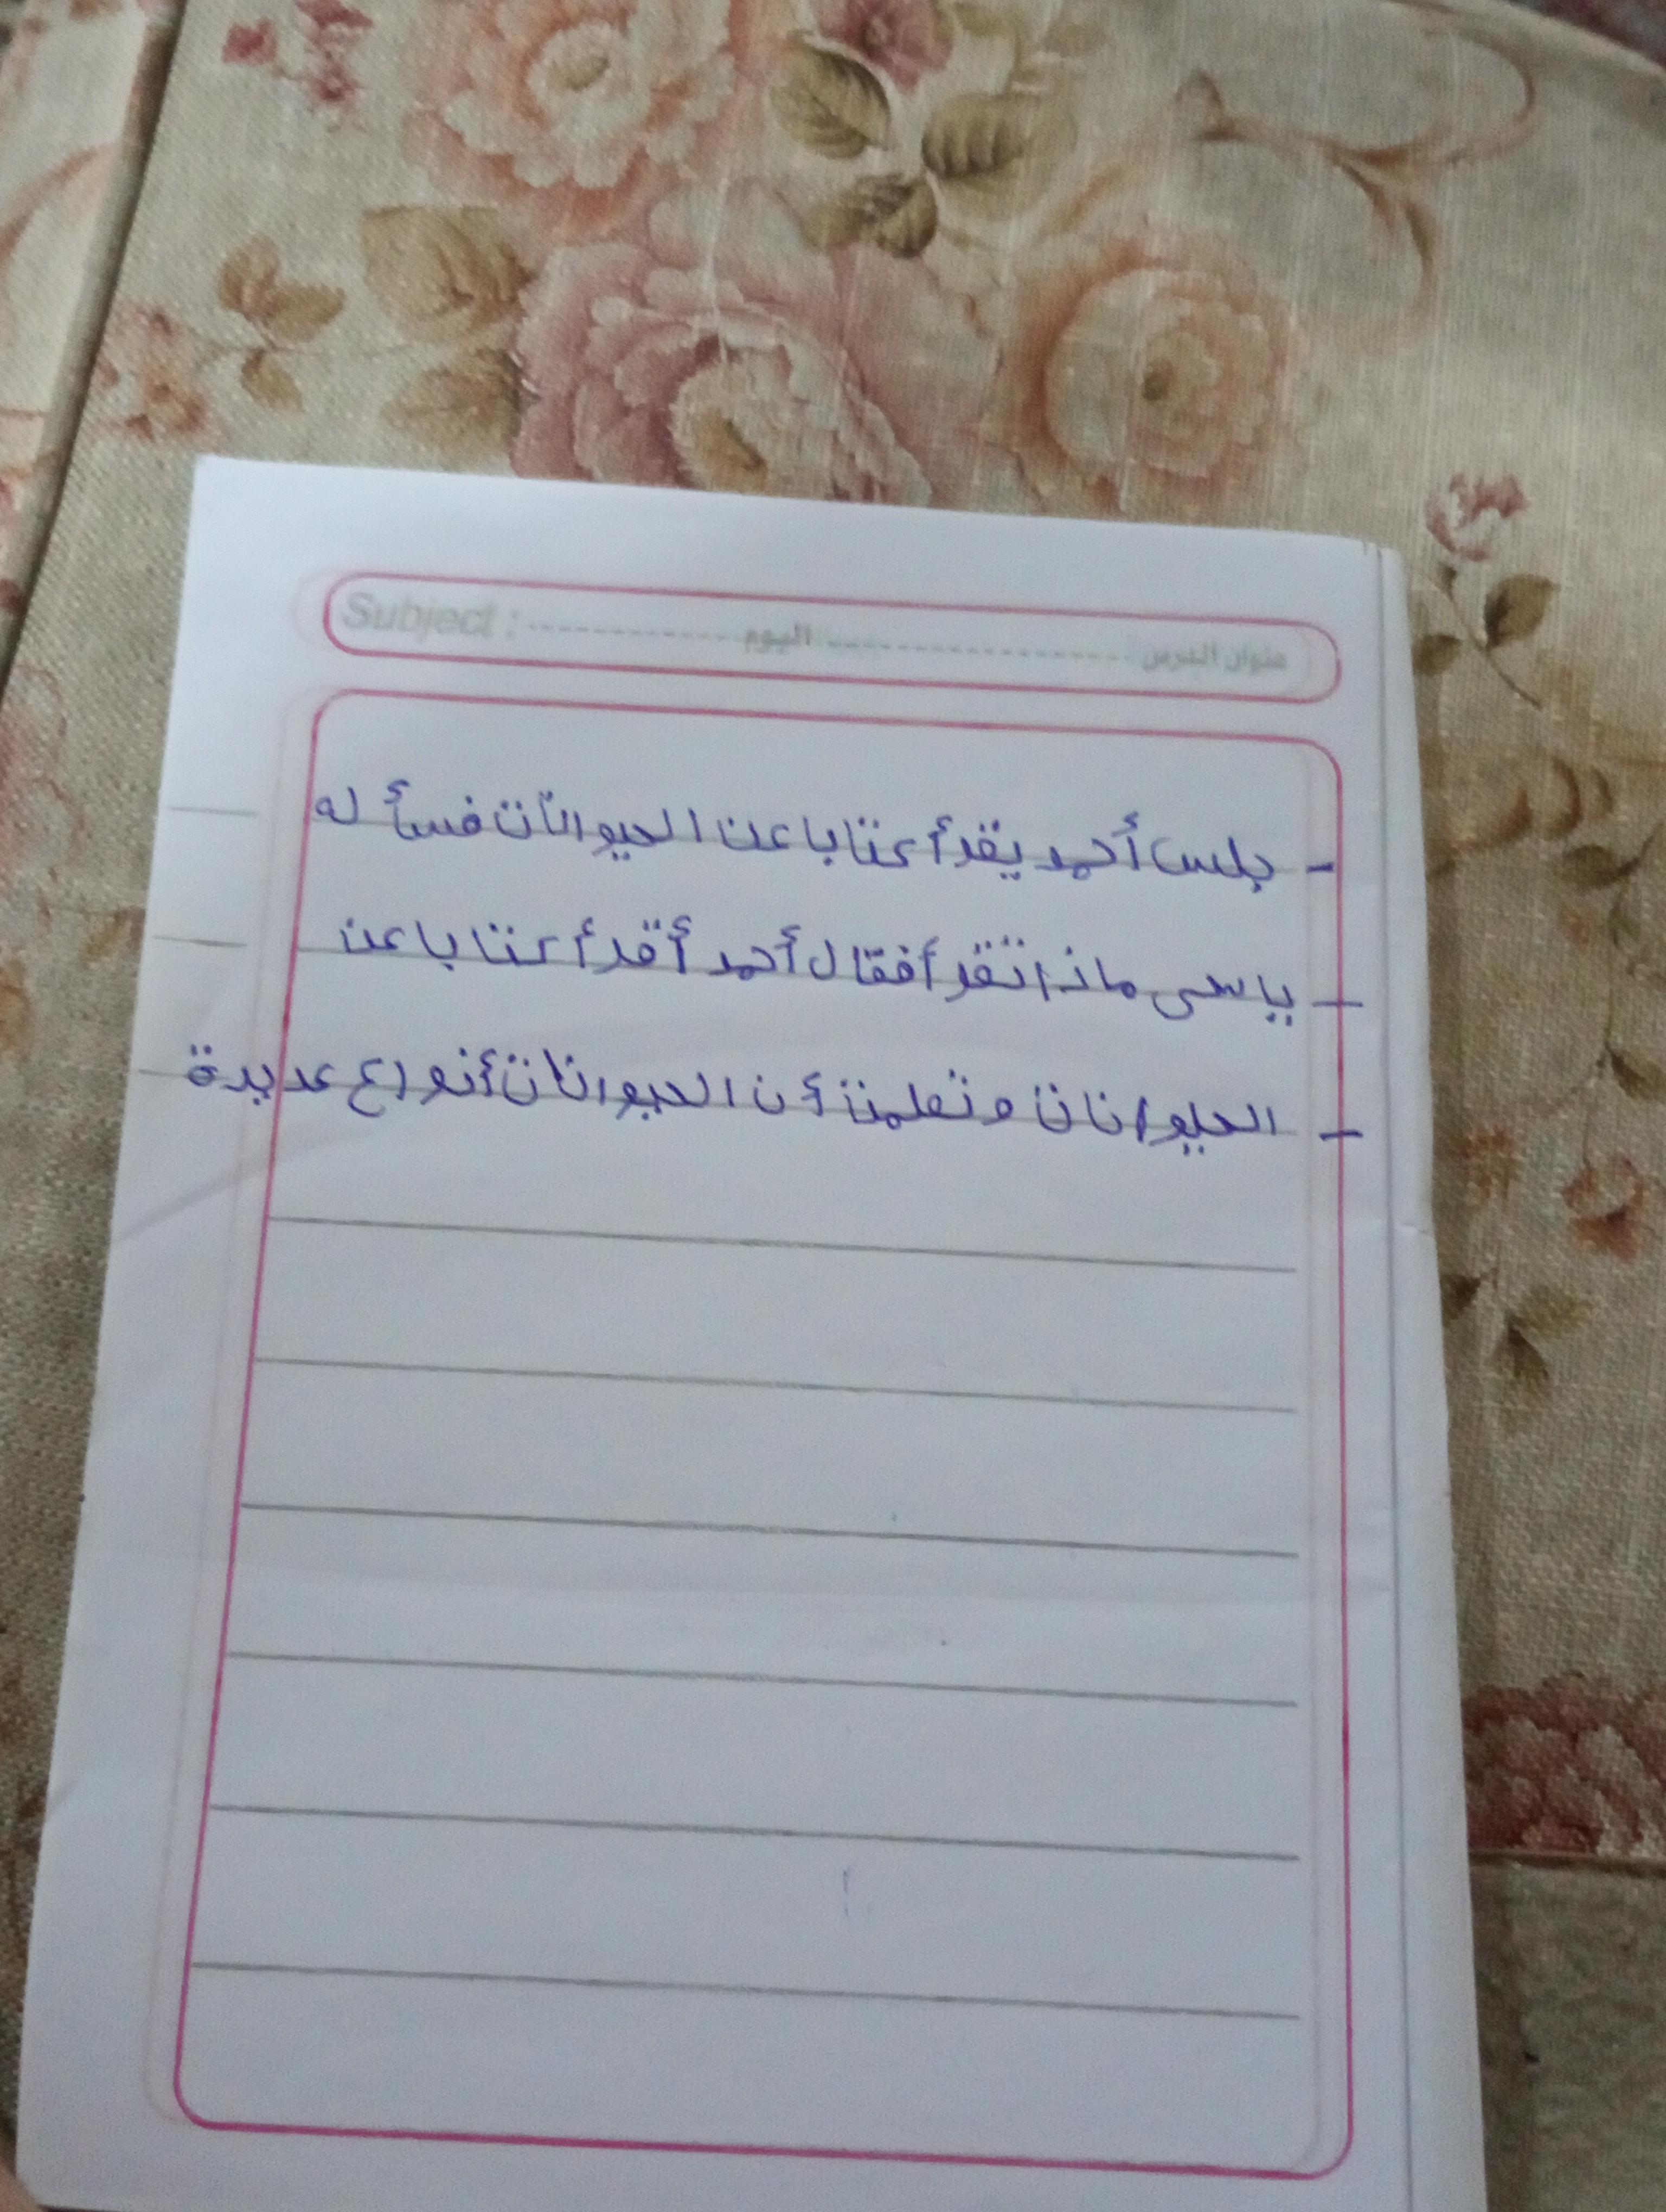 عنوان الدرس ------------------ اليوم ------------- Subject :
- جلس أحمد يقرأ كتابا عن الحيوانات فسأله
- ياسمى ماذا تقرأ فقال أحمد أقرأ كتابا عن
- الحيوانات وتعلمت أن الحيوانات أنواع عديدة